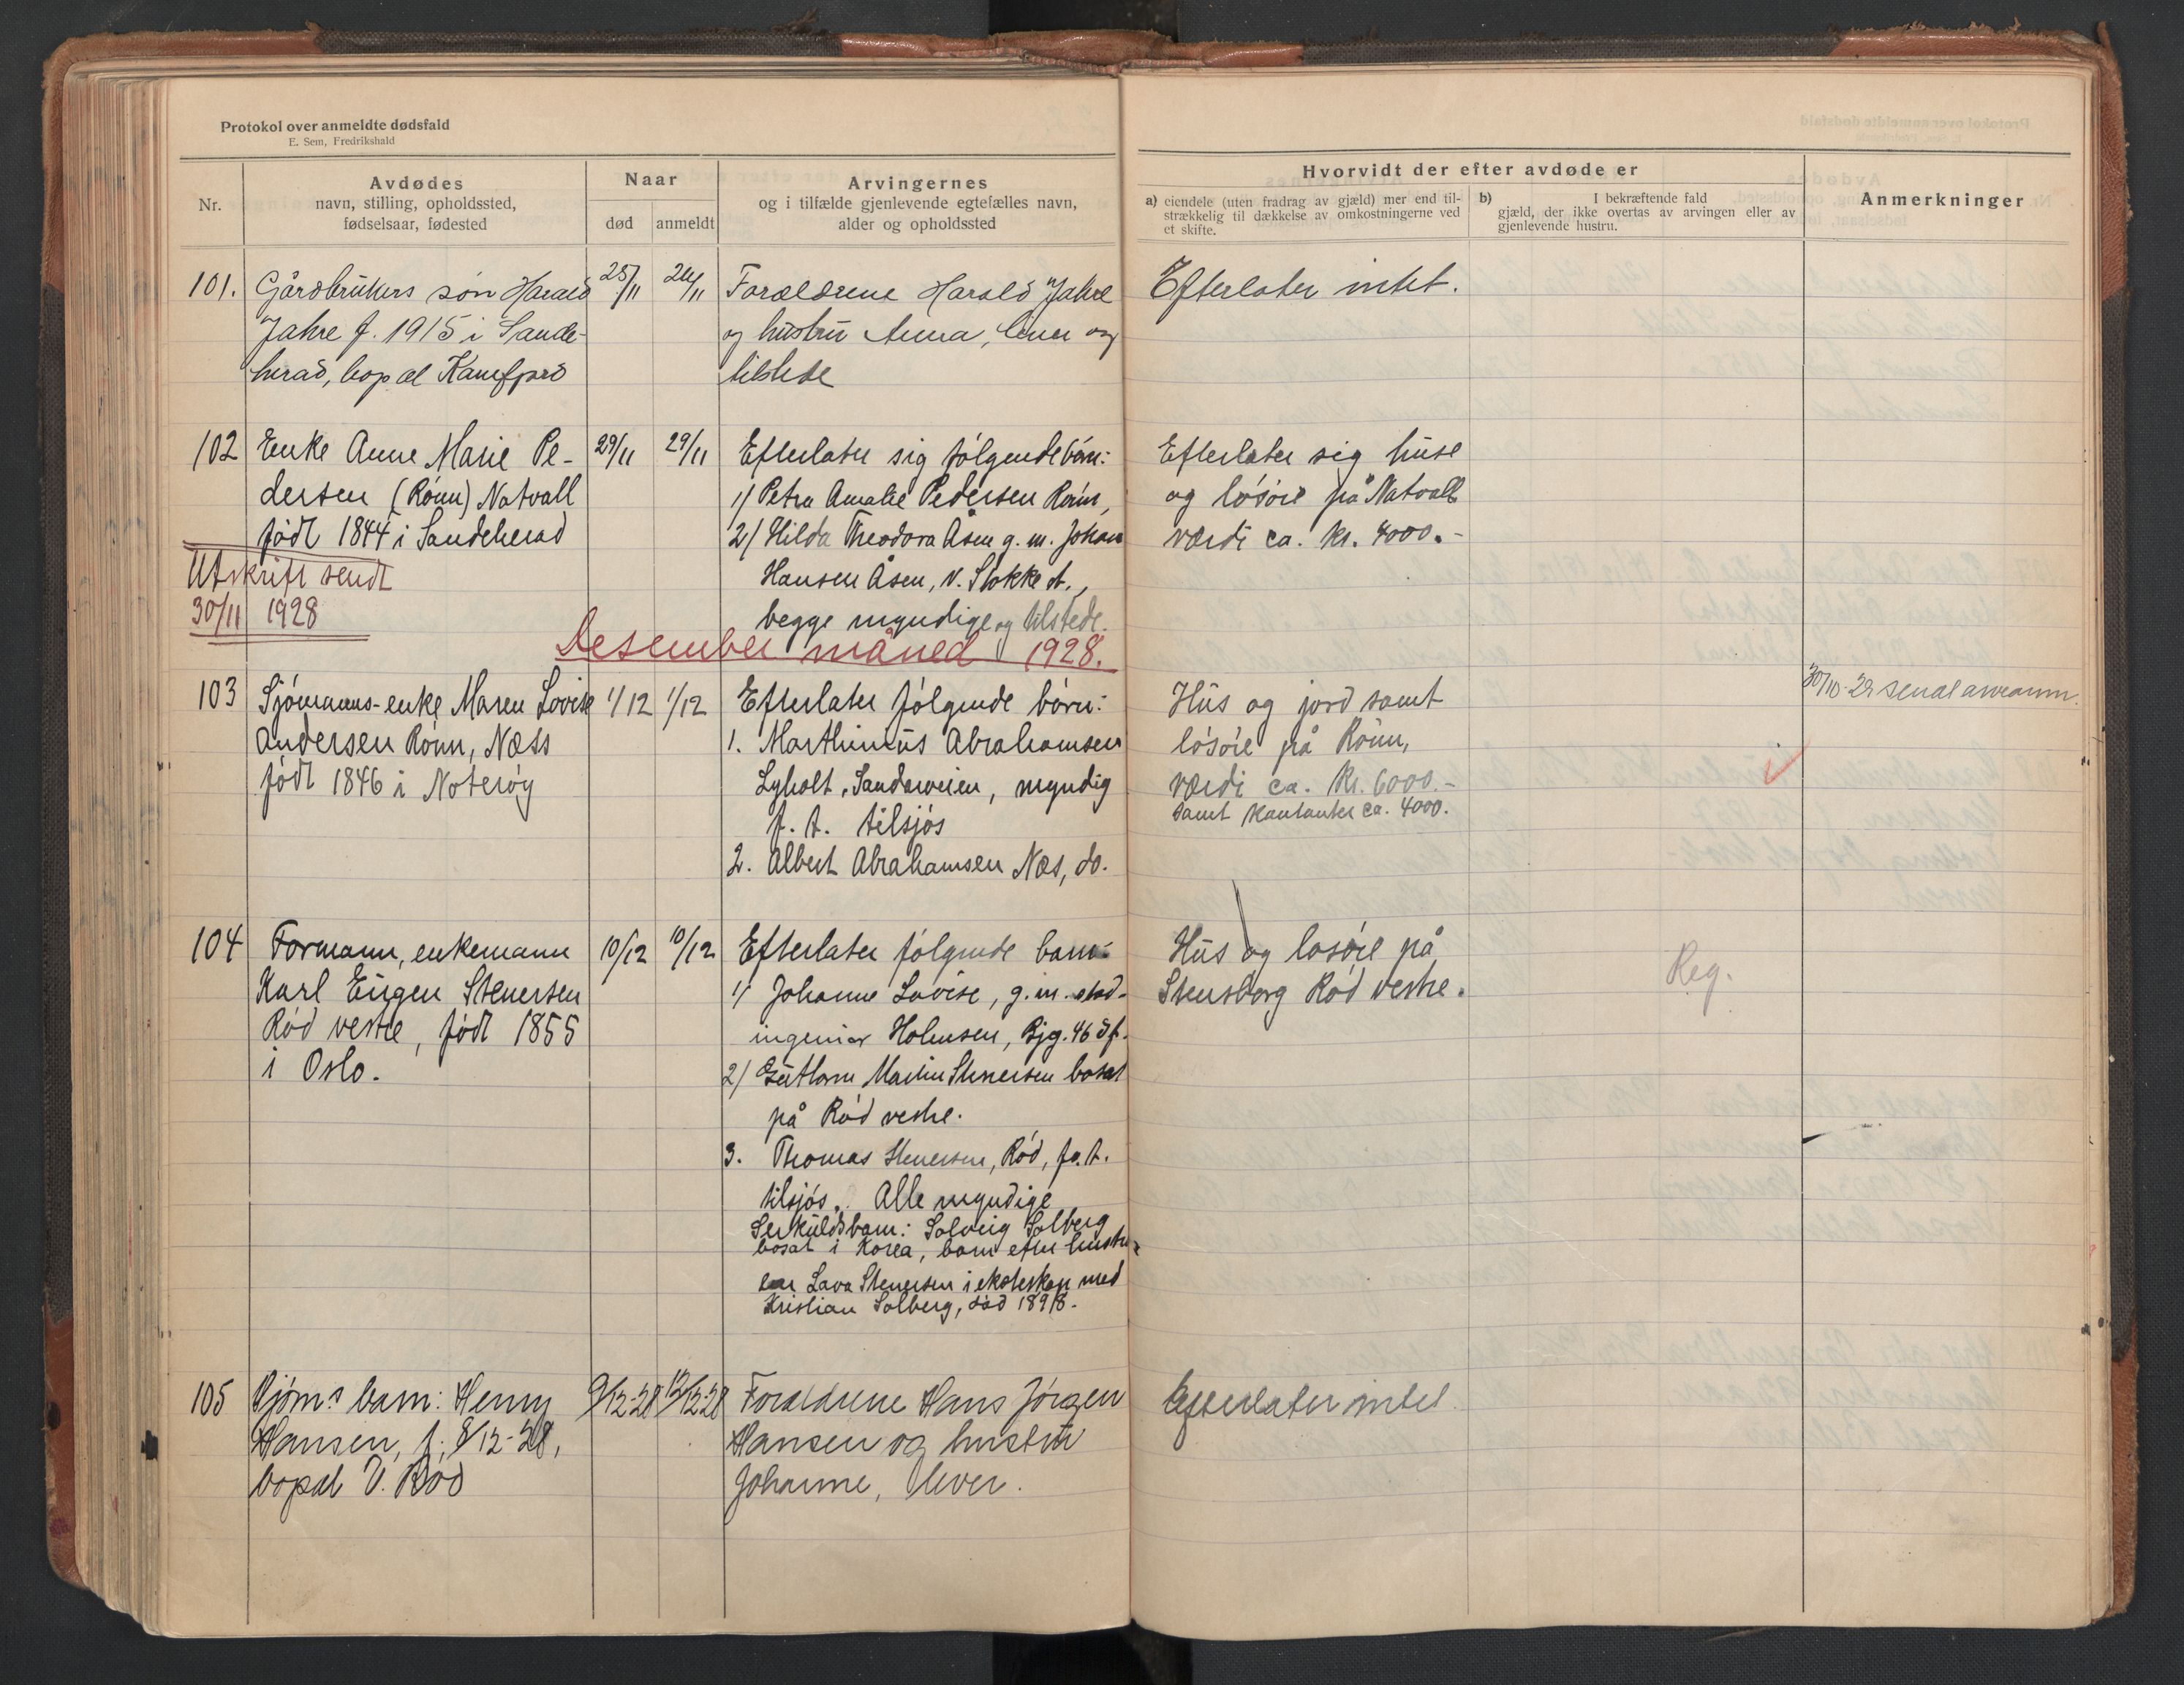 Protokol over anmeldte dødsfald
E. Sem, Fredrikshald
Nr.
Avdødes
navn, stilling, opholdssted,
fødselsaar, fødested
Naar
død
anmeldt
Arvingernes
og i tilfælde gjenlevende egtefælles navn,
alder og opholdssted
Hvorvidt der efter avdøde er
a) eiendele (uten fradrag av gjæld) mer end til-
strækkelig til dækkelse av omkostningerne ved
et skifte.
b) I bekræftende fald
gjæld, der ikke overtas av arvingen eller av
gjenlevende hustru.
Anmerkninger
101.
Gårdbrukers søn Harald
Jahre f. 1915 i Sande-
herad, bopæl
25/11
26/11
Forældrene Harald Jahre
og hustru Anna, lever og
tilstede
Efterlater intet.
102
Enke Anne Marie Pe-
dersen (Rønn) Natvall
født 1844 i Sandeherad
29/11
29/11
Efterlater sig følgende børn:
1/ Petra Amalie Pedersen Rønn,
2/ Hilda Theodora Åsen g. m. Johan
Hansen Åsen, v. Stokke st.,
begge myndige og tilstede.
Efterlater sig huse
og løsøre på Natvall
værdi ca. kr. 4000.-
Utskrift sendt
30/11 1928
Desember måned 1928.
103
Sjømanns-enke Maren Lovise
Andersen Rønn, Næss
født 1846 i Noterøy
1/12
1/12
Efterlater følgende børn:
1. Marthinius Abrahamsen
Lyholt, Sandarveien, myndig
f. t. tilsjøs
2. Albert Abrahamsen Næs, do.
Hus og jord samt
løsøre på Rønn,
værdi ca. Kr. 6000.-
samt kontanter ca. 4000.
30/10-29 sendt arveanm.
104
Formann, enkemann
Karl Eugen Stenersen
Rød vestre, født 1855
i Oslo.
10/12
10/12
Efterlater følgende barn
1/ Johanne Lovise, g. m. stad-
ingeniør Holmsen, Bjg. 46 df.
2/ Guthorm Martin Stenersen bosat
på Rød vestre.
3. Thomas Stenersen, Rød, fo. t.
tilsjøs. Alle myndige
Særkuldsbarn: Solveig Solberg
bosat i Korea, barn efter hustru-
en Lava Stenersen i ekteskap med
Kristian Solberg, død 1898.
Hus og løsøre på
Stensborg Rød vestre.
Reg.
105
Sjøm.s barn: Henny
Hansen, f. 8/12-28,
bopæl V. Rød
9/12-28
12/12-28
Forældrene Hans Jørgen
Hansen og hustru
Johanne, lever.
Efterlater intet.